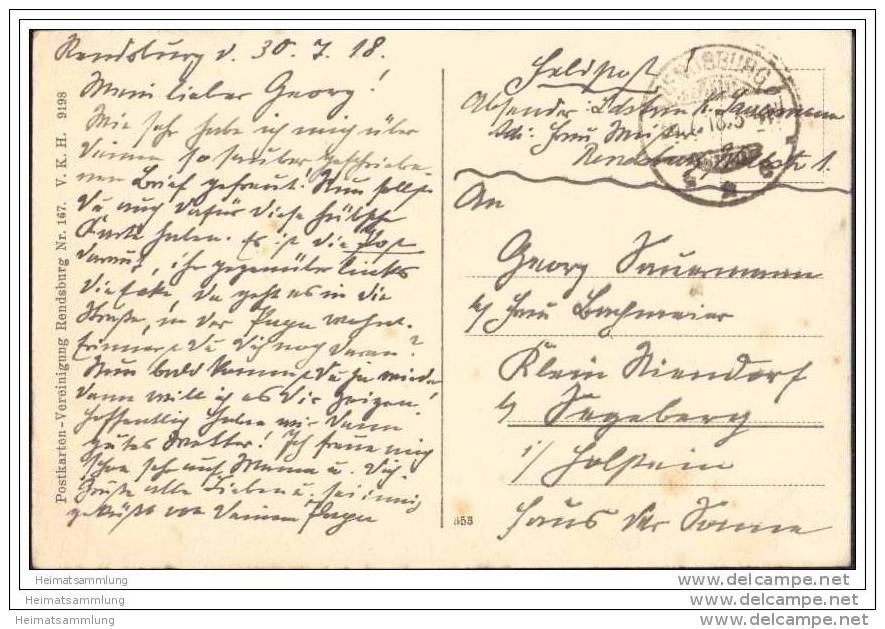 Rendsburg d. 30.7.18.
Mein lieber Georg!
Wie sehr habe ich mich über
Deinen so sauber geschriebe-
nen Brief gefreut! Nun sollst
Du auch dafür diese hübsche
Karte haben. Es ist die Post
darauf, ihr gegenüber links
die Ecke, da geht es in die
Straße, in der Papa wohnt.
Erinnerst Du Dich noch daran?
Nun bald kommst Du ja wieder
dann will ich es Dir zeigen!
Hoffentlich haben wir dann
gutes Wetter! Ich freue mich
schon sehr auf Mama u. Dich
Grüße alle Lieben u. sei innig
geküßt von Deinem Papa
Postkarten-Vereinigung Rendsburg Nr. 167. V. K. H. 9198
Feldpost!
Absender: Sauermann
Rendsburg 1.
RENDSBURG
An
Georg Sauermann
b/ Frau Bachmeier
Klein Niendorf
b/ Segeberg
i/ Holstein
Haus der Sonne
353
Heimatsammlung
Heimatsammlung
Heimatsammlung
www.delcampe.net
www.delcampe.net
www.delcampe.net